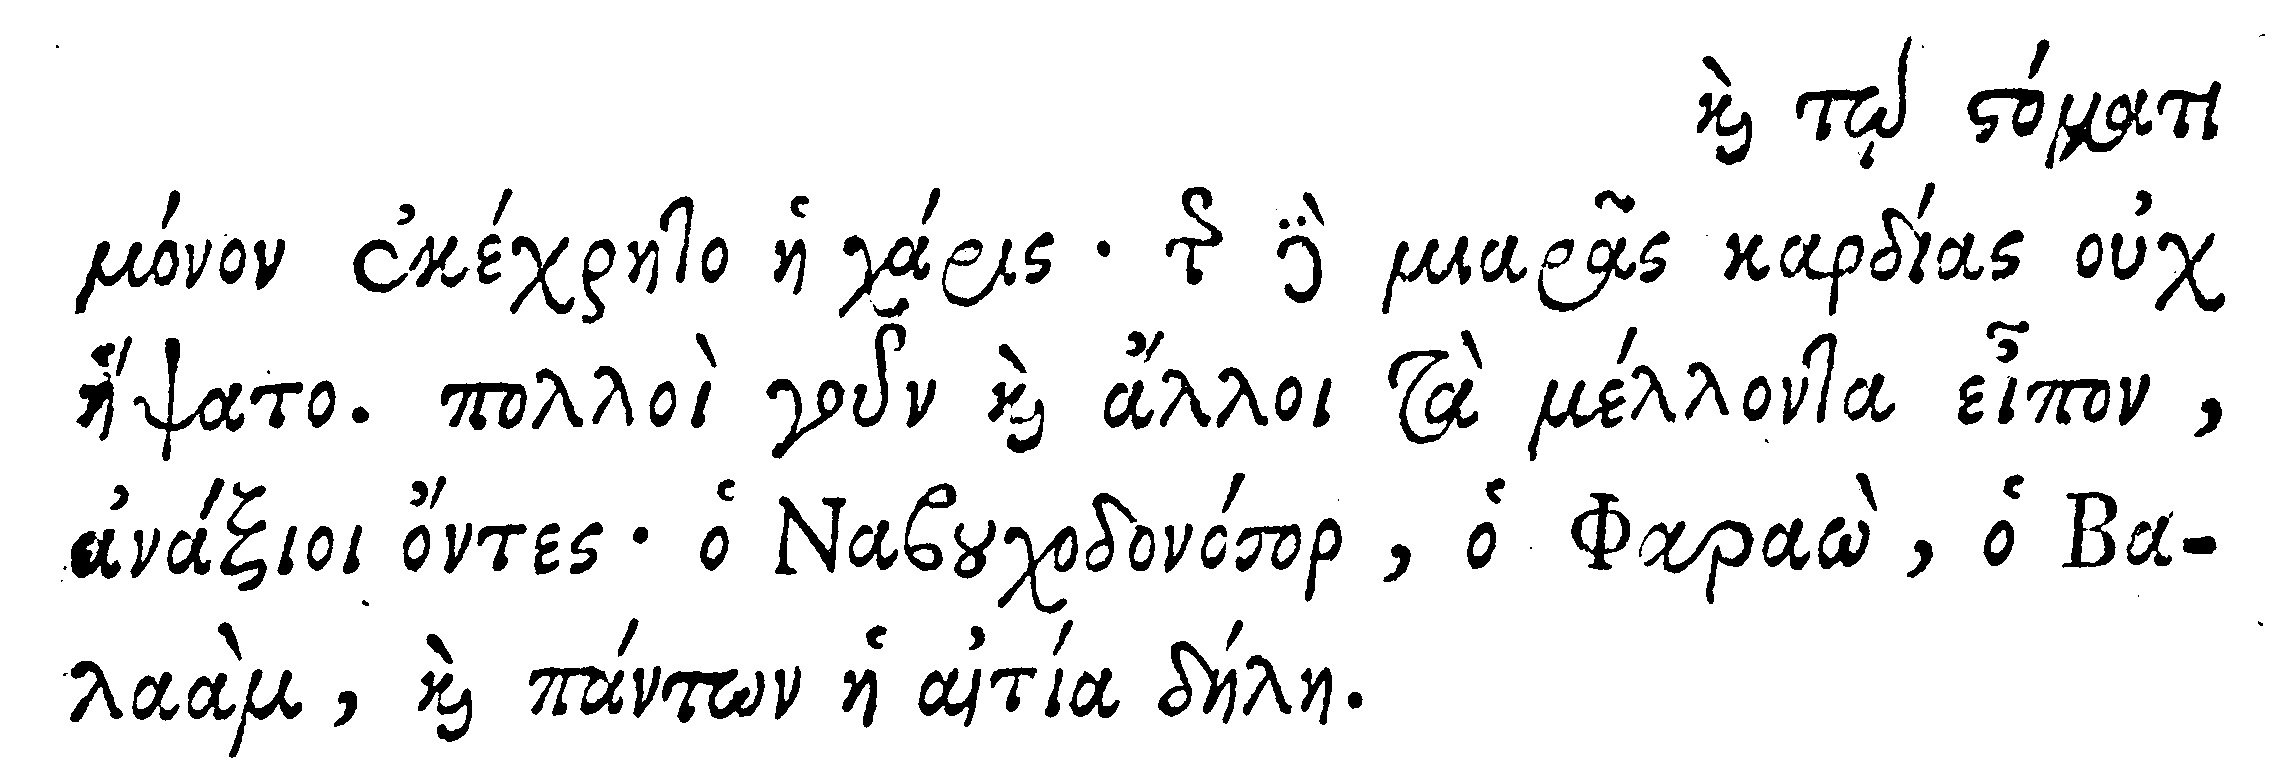 καὶ τῷ στόματι
μόνον ἐκέχρητο ἡ χάρις· τῆς δὲ μιαρᾶς καρδίας οὐχ
ἥψατο. πολλοὶ γοῦν καὶ ἄλλοι τὰ μέλλοντα εἶπον,
ἀνάξιοι ὄντες· ὁ Ναβουχοδονόσορ, ὁ Φαραὼ, ὁ Βα-
λαὰμ, καὶ πάντων ἡ αἰτία δήλη.